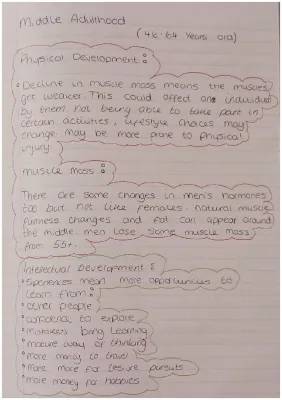 Middle Adulthood
(46-64 Years old)
Physical Development:
• Decline in muscle mass means the muscles
get weaker. This could affect one individual
by them not being able to take part in
certain activities, lifestyle choices may
change may be more prone to physical
injury.
muscle mass:
There are some changes in men's hormones
too but not like females. Natural muscle
fullness changes and fat can appear around
the middle. men lose some muscle mass
from 55+.
Intellectual Development:
• experiences mean more opportunities to
learn from:
• other people
• confidence to explore
• mistakes bring learning
• mature way of thinking
• more money to travel
• more more for leisure pursuits
• more money for hobbies